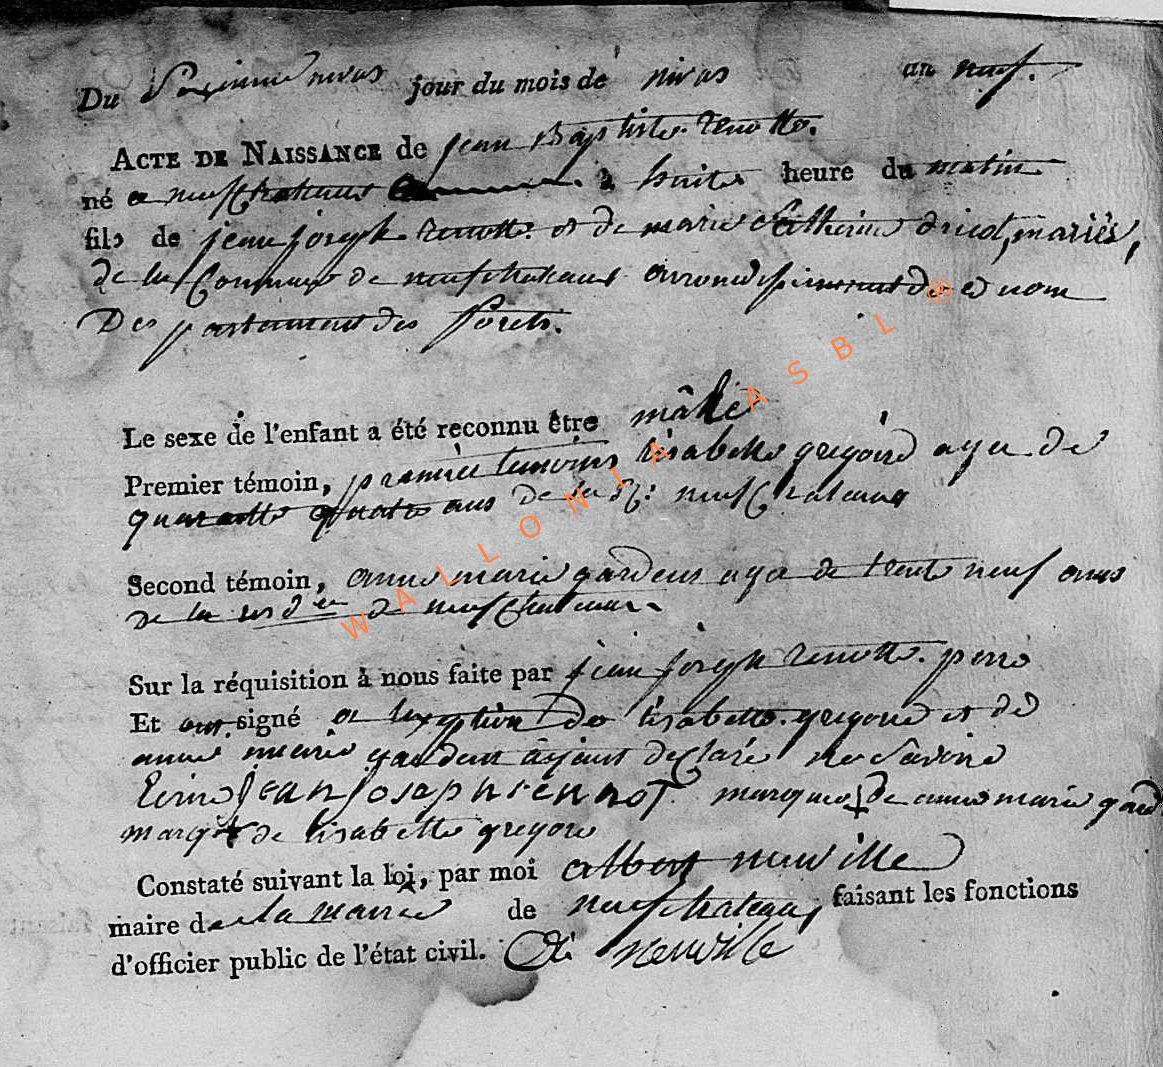 Du nivos jour du mois de nivos an neuf.
ACTE DE NAISSANCE de jean Baptiste renotte.
né a neufchateaus à huite heure du matin
fils de jean joseph renotte et de marie Catherine dricot, mariés,
de la Commune de neufchateaus
Des partement des forets.
Le sexe de l'enfant a été reconnu être mâle
Premier témoin, premier temoins lisabette gregoire age de
quarantte quatre ans de la neufchateaux
Second témoin, anne marie gardens age de trente neuf anns
de la de neufchateau
Sur la réquisition à nous faite par jean joseph renotte perre
Et ont signé a lexeption de lisabette gregoire et de
anne marie gardent aÿant declaré ne savoire
Ecrire jean josaph rennot marque de anne marie gard
marque de lisabette gregore
Constaté suivant la loi, par moi albert neuville
maire de la mairie de neufchateau, faisant les fonctions
d'officier public de l'état civil. neuville
WALLONIA ASBL ®